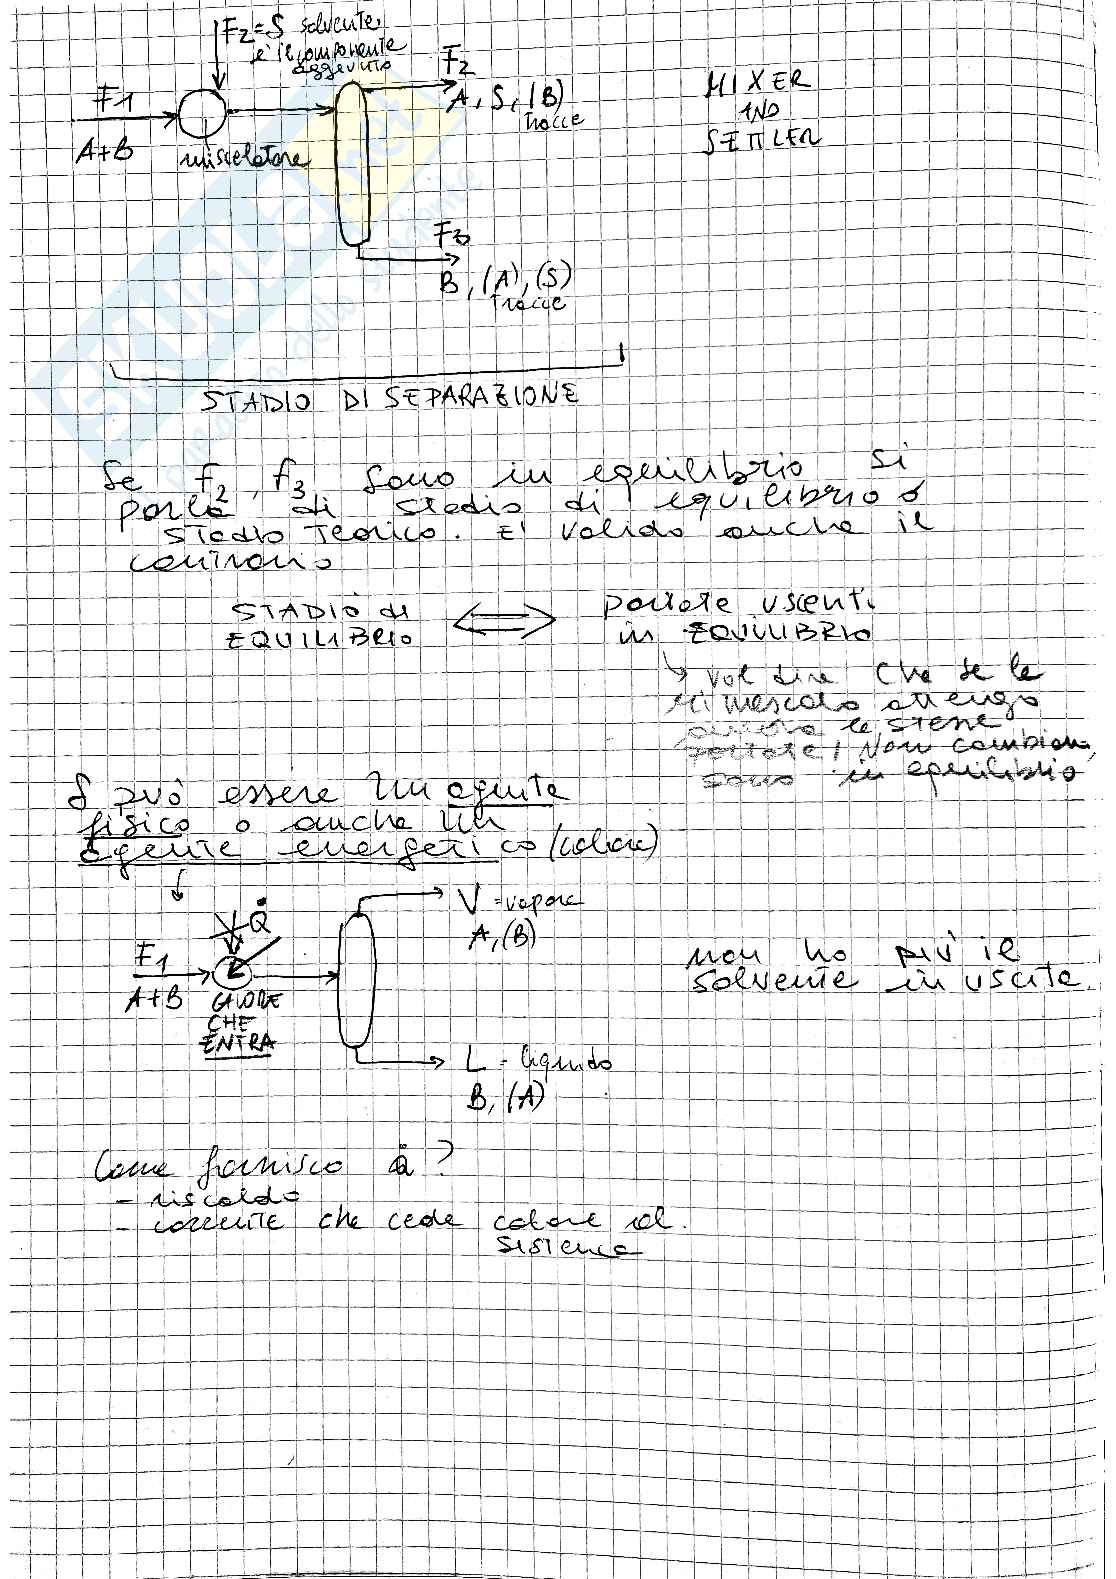 F2=S solvente,
è il componente
aggiunto
F1
A+B
miscelatore
F2
A, S, (B)
Tracce
MIXER
AND
SETTLER
F3
B, (A), (S)
Tracce
STADIO DI SEPARAZIONE
Se F2, F3 sono in equilibrio si
parla di stadio di equilibrio o
stadio Teorico. E' valido anche il
contrario
STADIO di
EQUILIBRIO
portate uscenti
in EQUILIBRIO
vol dire che se le
rimescolo ottengo
ancora le stesse
portate! Non cambiano,
sono in equilibrio
S può essere un agente
fisico o anche un
agente energetico (calore)
Q
F1
A+B
CALORE
CHE
ENTRA
V = vapore
A, (B)
non ho più il
solvente in uscita.
L = liquido
B, (A)
Come fornisco Q?
- riscaldo
- corrente che cede calore al
sistema
SKUOLA.net